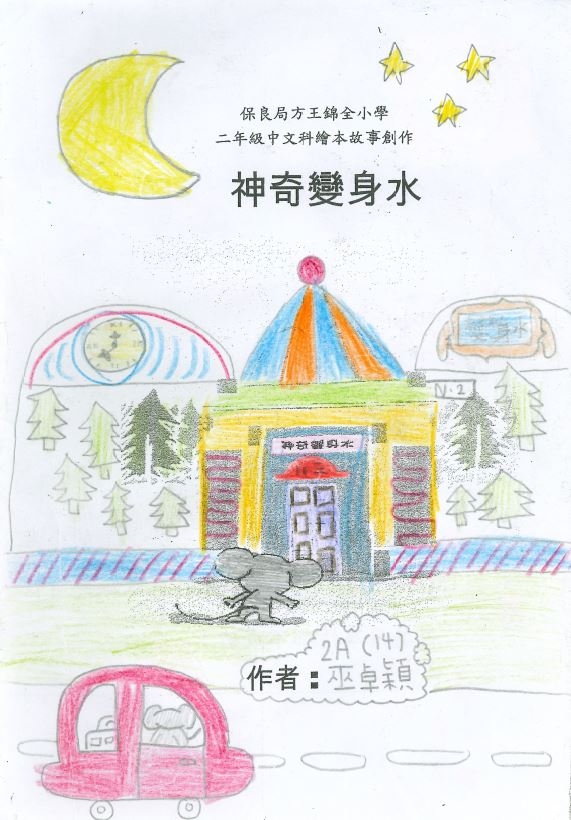 保良局方王錦全小學
二年級中文科繪本故事創作
神奇變身水
變身水
N·2
神奇變身水
2A (14)
作者：巫卓穎